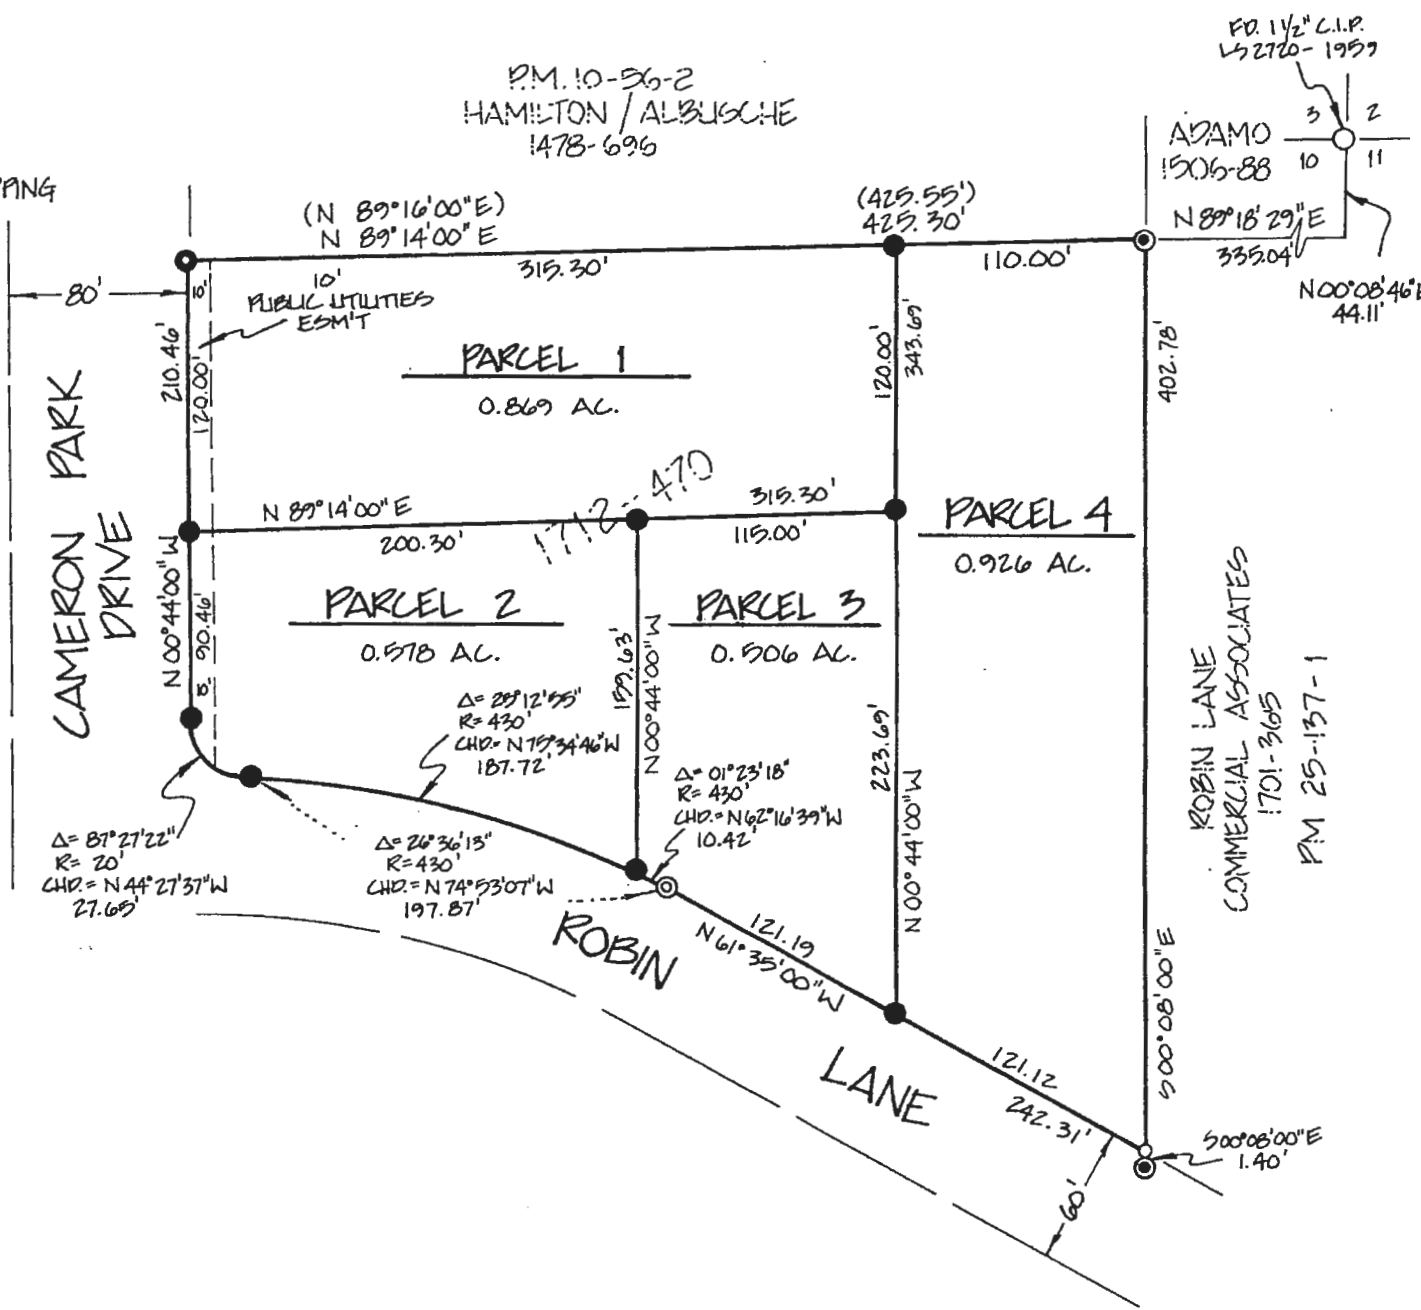 FD. 1 1/2" C.I.P.
LS 2720 - 1959
P.M. 10-56-2
HAMILTON / ALBUSCHE
1478-695
3 2
10 11
ADAMO
1506-88
PING
(N 89°16'00"E)
N 89°14'00"E
(425.55')
425.30'
N 89°18'29"E
335.04'
N 00°08'46"E
44.11'
315.30'
110.00'
80'
10'
10'
PUBLIC UTILITIES
ESM'T
210.46'
120.00'
PARCEL 1
0.869 AC.
120.00'
343.69'
402.78'
CAMERON PARK
DRIVE
1712-470
N 89°14'00"E
200.30'
315.30'
115.00'
PARCEL 4
0.926 AC.
N 00°44'00"W
90.46'
10'
PARCEL 2
0.578 AC.
159.63'
N 00°44'00"W
PARCEL 3
0.506 AC.
223.69'
N 00°44'00"W
ROBIN LANE
COMMERCIAL ASSOCIATES
1701-365
PM 25-137-1
Δ= 25°12'55"
R= 430'
CHD.= N 75°34'46"W
187.72'
Δ= 01°23'18"
R= 430'
CHD.= N 62°16'39"W
10.42'
Δ= 87°27'22"
R= 20'
CHD.= N 44°27'37"W
27.65'
Δ= 26°36'13"
R= 430'
CHD.= N 74°53'07"W
197.87'
ROBIN
LANE
121.19
N 61°35'00"W
121.12
242.31'
S 00°08'00"E
S 00°08'00"E
1.40'
60'